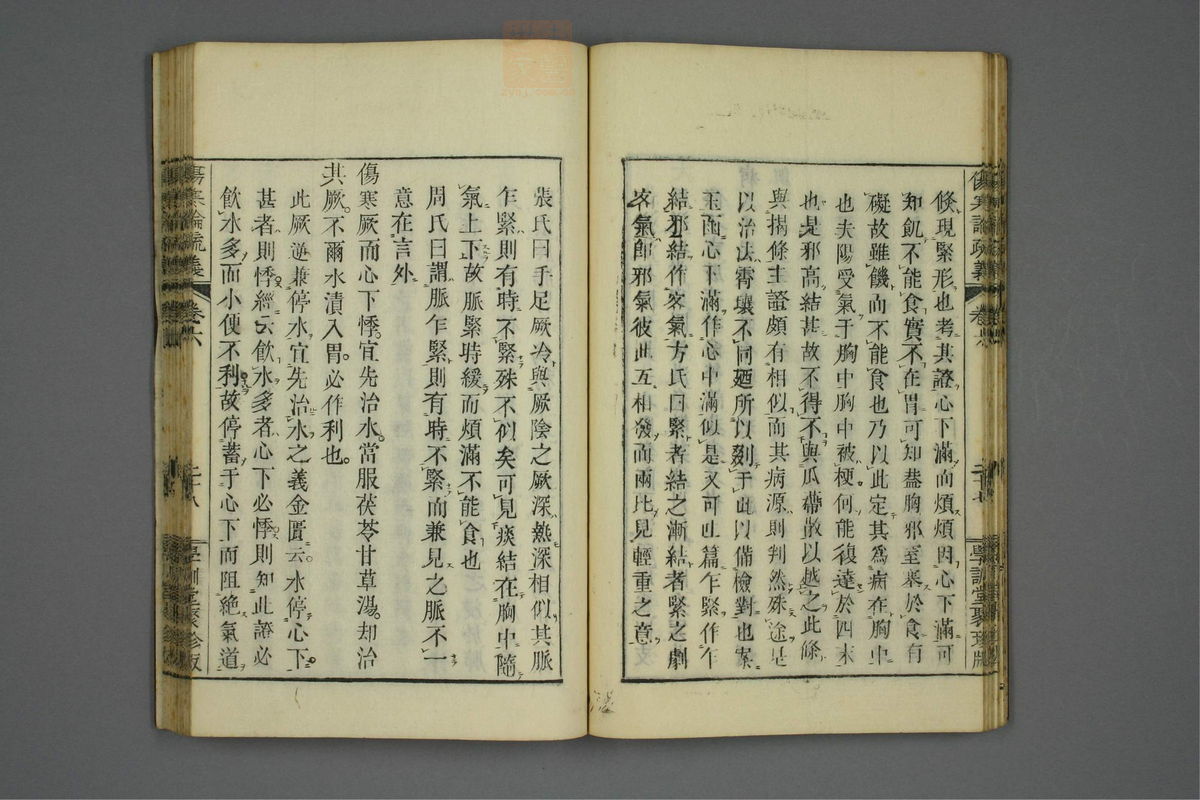 傷寒論疏義 卷六
二十八 學訓堂聚珍版
倏現緊形也考其證心下滿而煩煩因心下滿可
知飢不能食實不在胃可知蓋胸邪室礙於食有
礙故雖饑而不能食也乃以此定其爲病在胸中
也夫陽受氣于胸中胸中被梗何能復達於四末
也是邪高結甚故不得不與瓜蒂散以越之此條
與揭條主證頗有相似而其病源則判然殊途是
以治法霄壤不同廼所以列于此以備檢對也案
玉函心下滿作心中滿似是又可也篇乍緊作乍
結邪結作客氣方氏曰緊者結之漸結者緊之劇
客氣卽邪氣彼此互相發而兩比見輕重之意
張氏曰手足厥冷與厥陰之厥深熱深相似其脈
乍緊則有時不緊殊不似矣可見痰結在胸中隨
氣上下故脈緊時緩而煩滿不能食也
周氏曰謂脈乍緊則有時不緊而兼見之脈不一
意在言外
傷寒厥而心下悸。宜先治水。當服茯苓甘草湯。却治
其厥。不爾水漬入胃。必作利也。
此厥逆兼停水宜先治水之義金匱云水停心下。
甚者則悸經云飲水多者心下必悸則知此證必
飲水多而小便不利故停蓄于心下而阻絶氣道
傷寒論疏義 卷六
二十八 學訓堂聚珍版